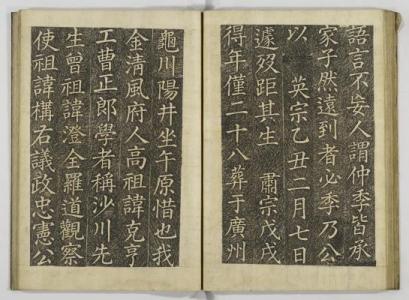 語言不妄人謂仲季皆承
家子然遠到者必季乃公
以 英宗乙丑二月七日
遽歿距其生 肅宗戊戌
得年僅二十八葬于廣州
龜川陽井坐午原惜也我
金清風府人高祖諱克亨
工曹正郎學者稱沙川先
生曾祖諱澄全羅道觀察
使祖諱構右議政忠憲公